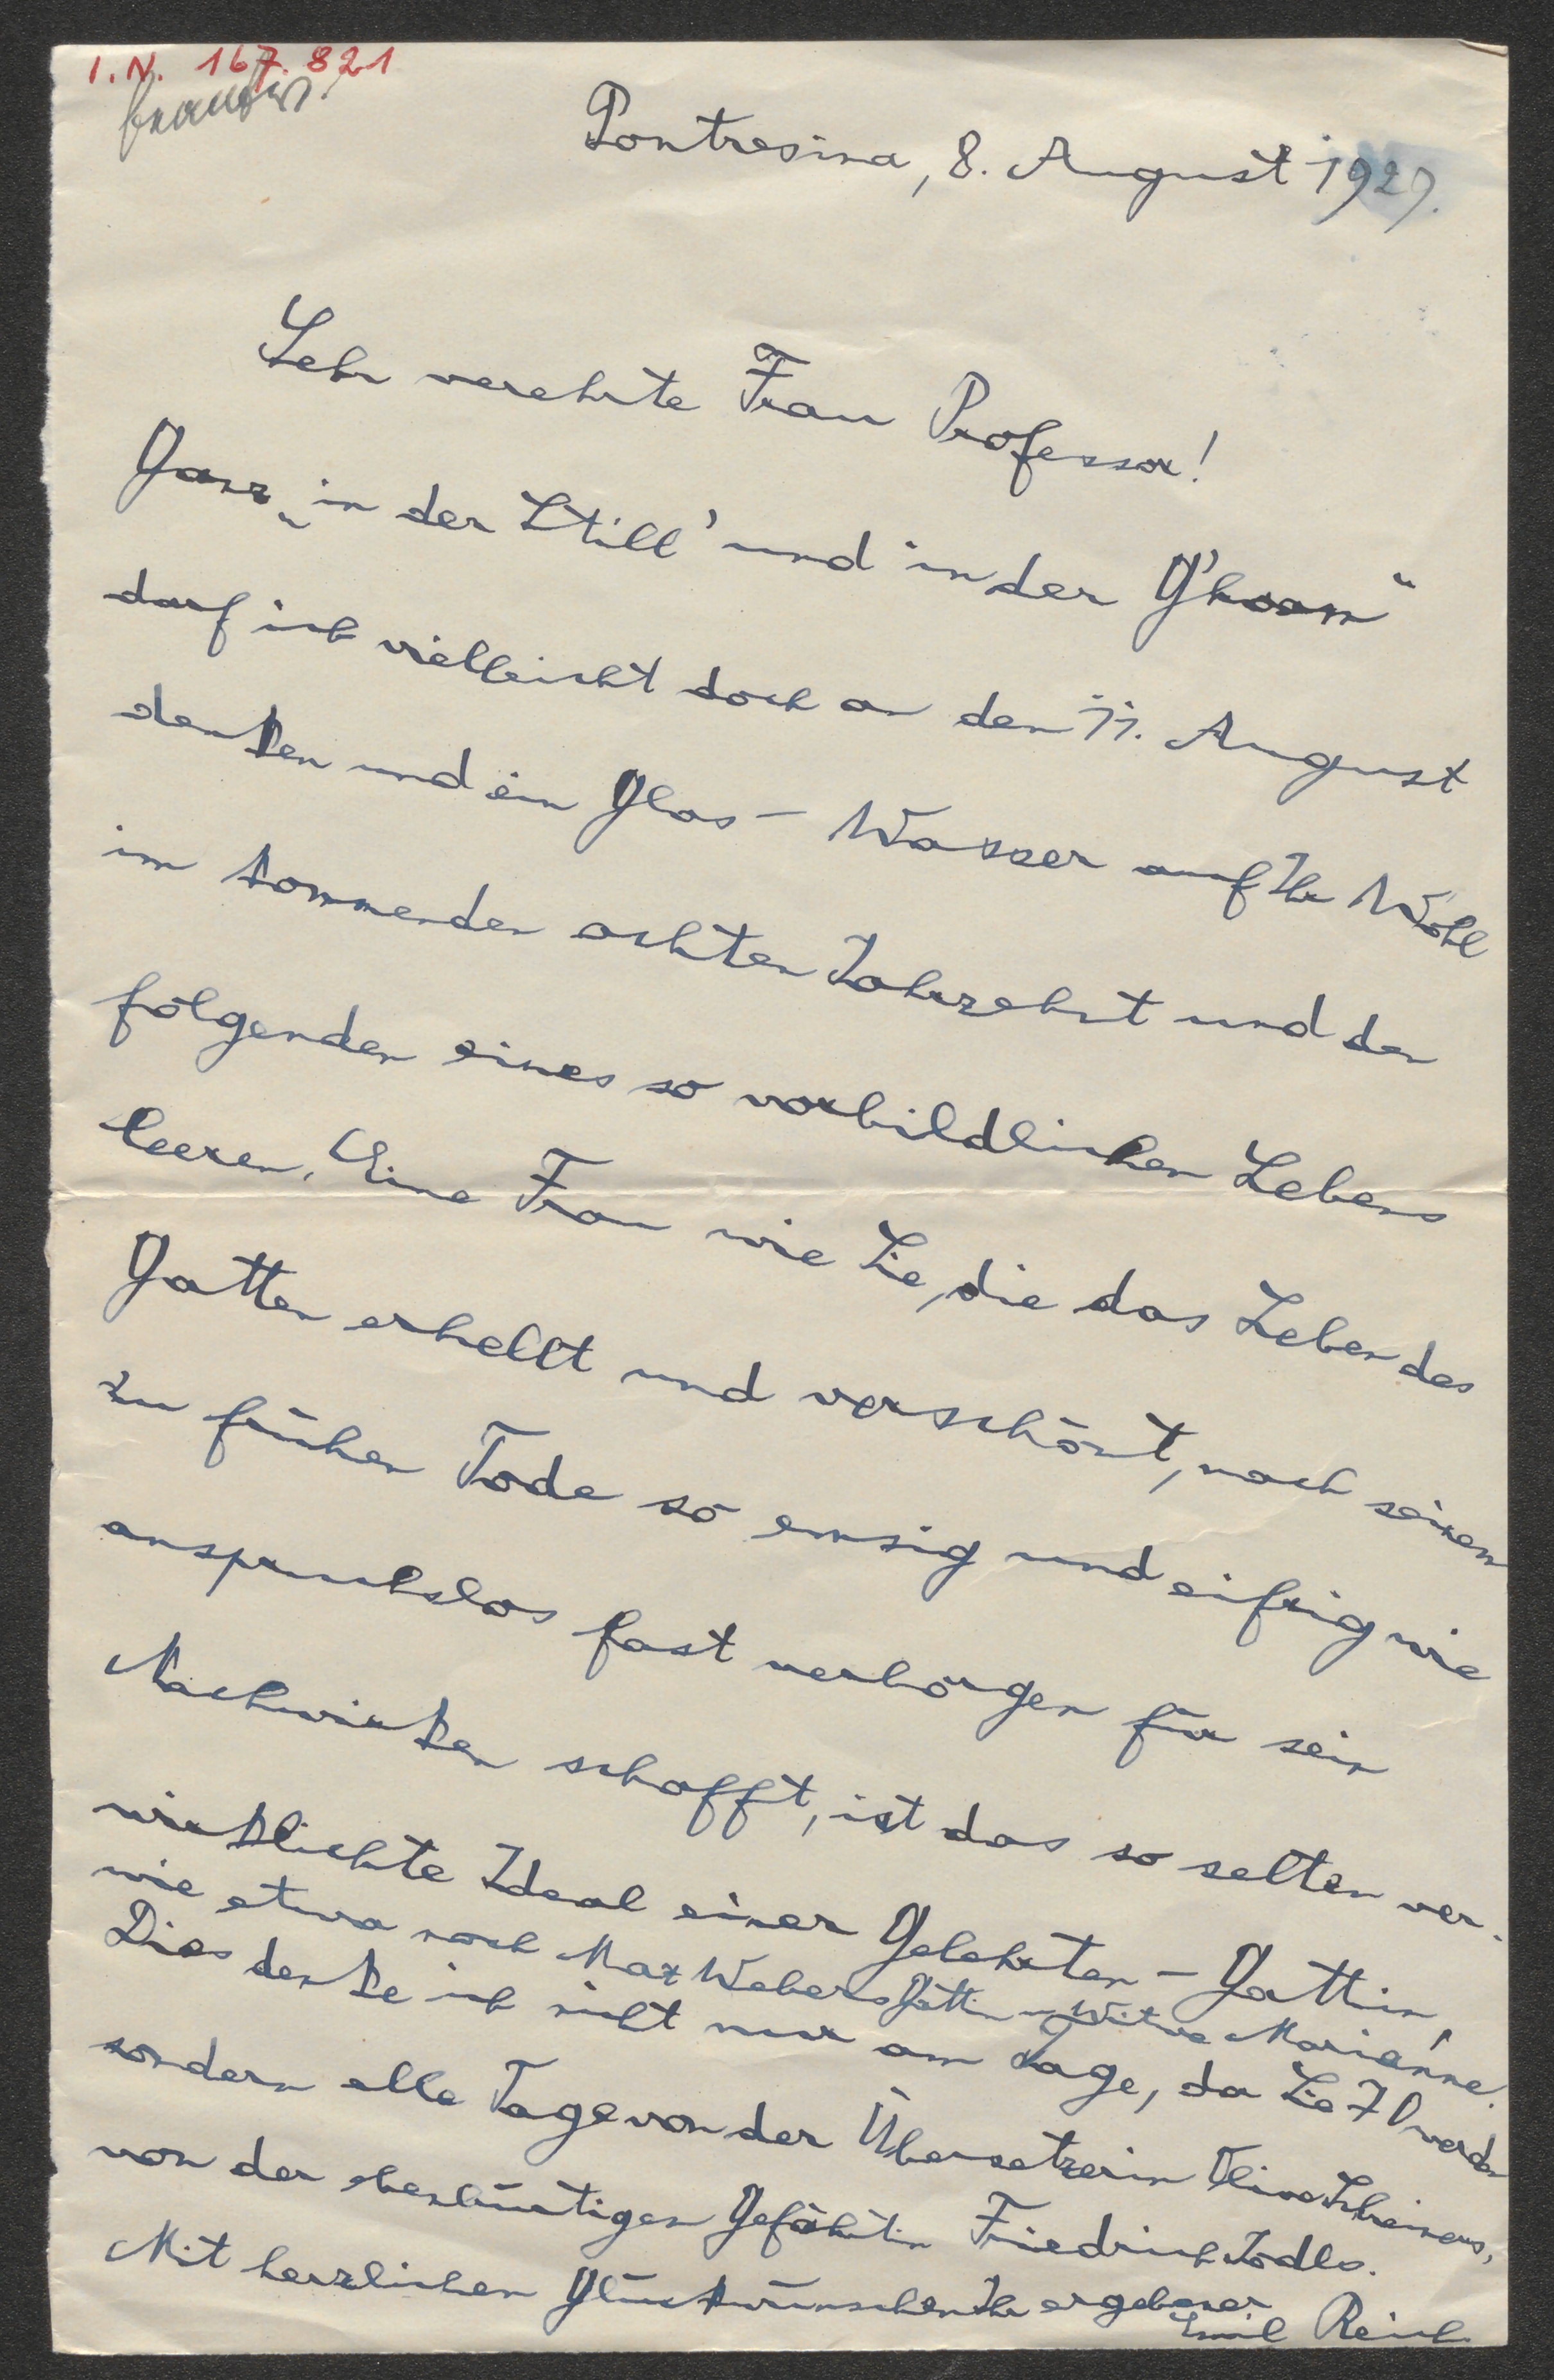 I.N. 167.821
beantw.
Pontresina, 8. August 1927.
Sehr verehrte Frau Professor!
Ganz „in der Still' und in der G'hoam“
darf ich vielleicht doch an den 11. August
denken und ein Glas – Wasser auf Ihr Wohl
im kommenden achten Jahrzehnt und den
folgenden eines so vorbildlichen Lebens
leeren. Eine Frau wie Sie, die das Leben des
Gatten erhellt und verschönt, nach seinem
zu frühen Tode so emsig und eifrig wie
anspruchslos fast verborgen für sein
Nachwirken schafft, ist das so selten ver-
wirklichte Ideal einer Gelehrten-Gattin,
wie etwa noch Max Webers Gattin u. Witwe Marianne.
Dies denke ich nicht nur am Tage, da Sie 70 werden
sondern alle Tage von der Übersetzerin Olive Schreiners,
von der ebenbürtigen Gefährtin Friedrich Jodls.
Mit herzlichen Glückwünschen Ihr ergebener
Emil Reich